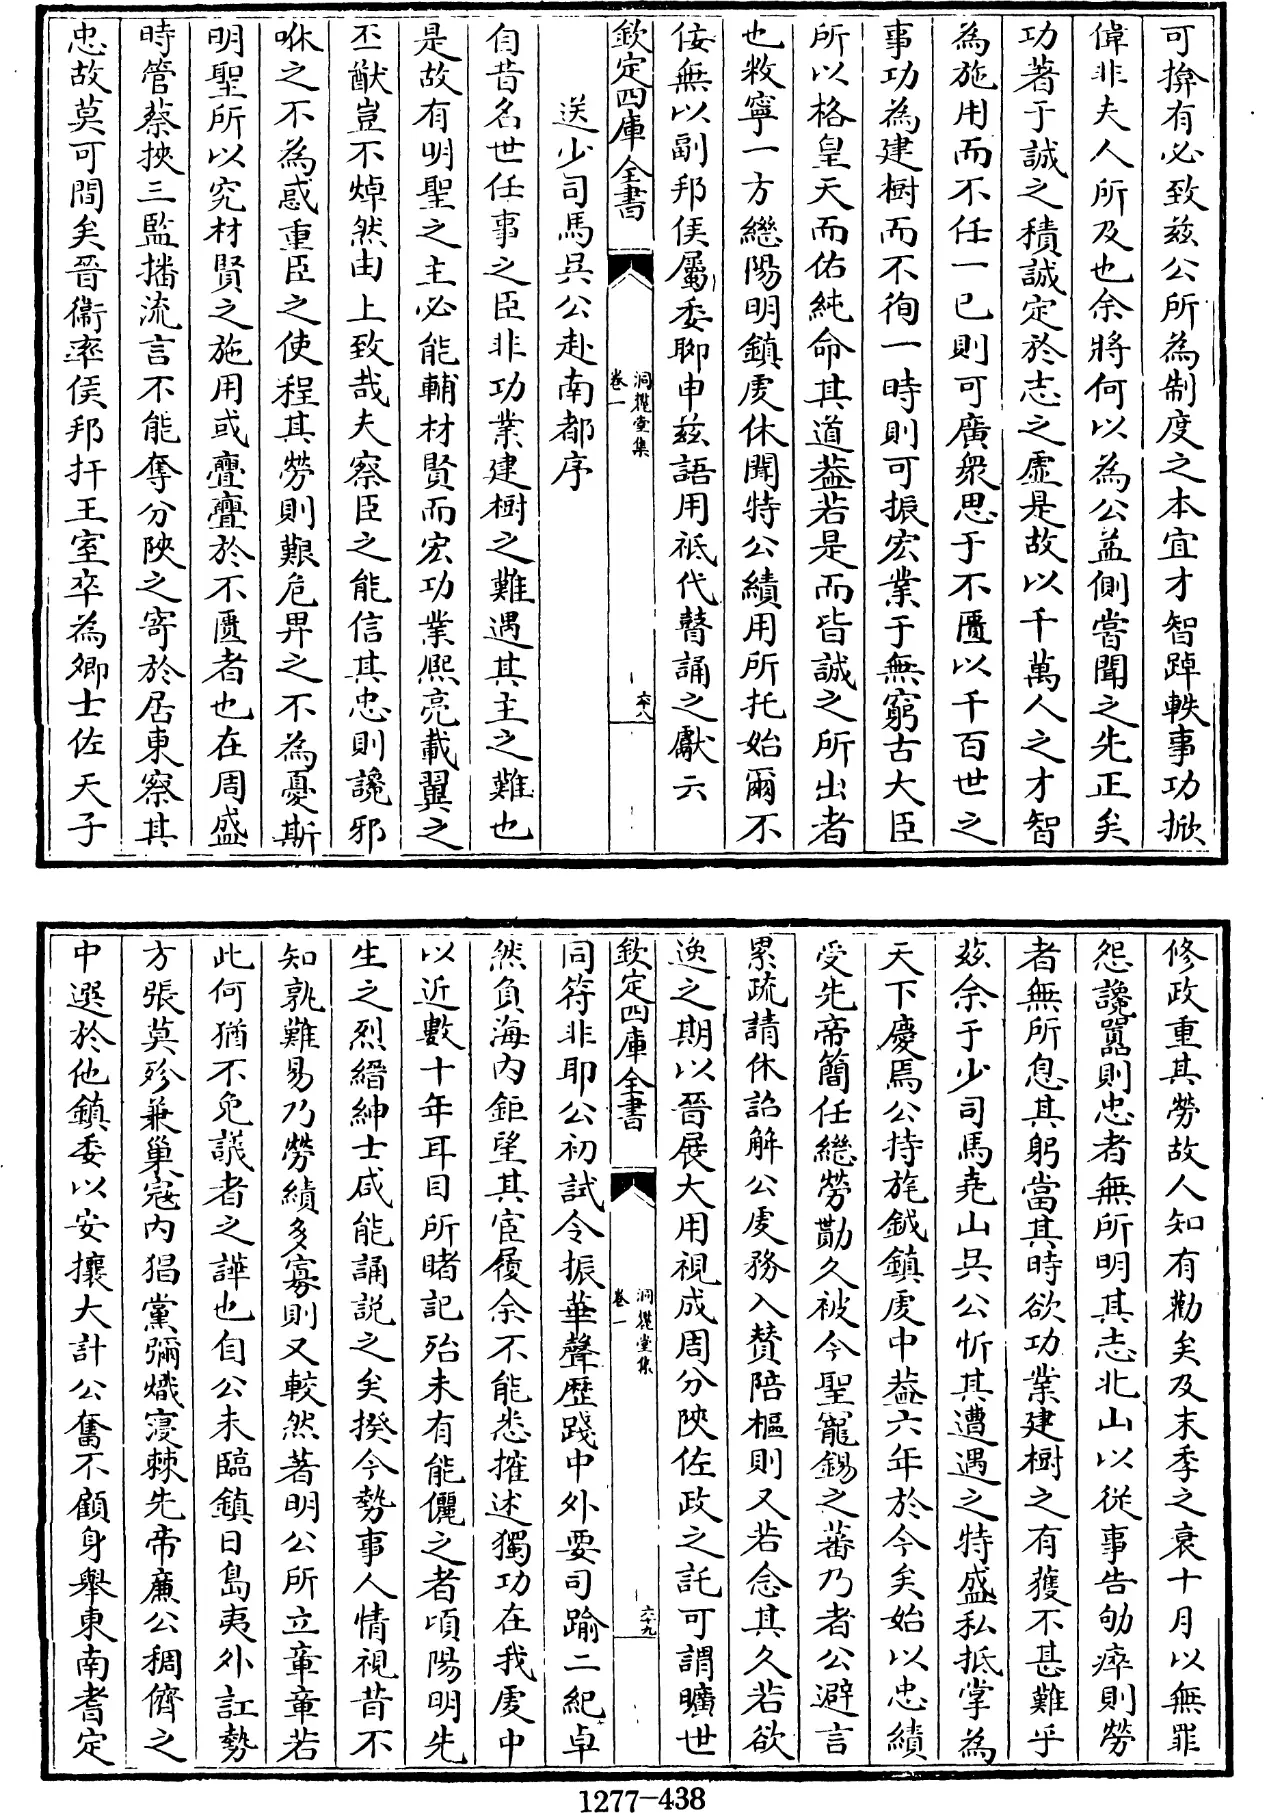 可揜有必致兹公所為制度之本宜才智踔軼事功掀
偉非夫人所及也余將何以為公益側嘗聞之先正矣
功著于誠之積誠定於志之虛是故以千萬人之才智
為施用而不任一已則可廣衆思于不匱以千百世之
事功為建樹而不徇一時則可振宏業于無窮古大臣
所以格皇天而佑純命其道葢若是而皆誠之所出者
也敉寧一方繼陽明鎮䖍休聞特公績用所托始爾不
佞無以副邦侯屬委聊申兹語用祗代瞽誦之獻云
欽定四庫全書
洞麓堂集
卷一
六十八
送少司馬吳公赴南都序
自昔名世任事之臣非功業建樹之難遇其主之難也
是故有明聖之主必能輔材賢而宏功業熈亮載翼之
丕猷豈不焯然由上致哉夫察臣之能信其忠則讒邪
咻之不為惑重臣之使程其勞則艱危畀之不為憂斯
明聖所以究材賢之施用或亹亹於不匱者也在周盛
時管蔡挾三監播流言不能奪分陜之寄於居東察其
忠故莫可間矣晉衞率侯邦扞王室卒為卿士佐天子
修政重其勞故人知有勸矣及末季之衰十月以無罪
怨讒嚚則忠者無所明其志北山以從事告劬瘁則勞
者無所息其躬當其時欲功業建樹之有獲不甚難乎
兹余于少司馬堯山吳公忻其遭遇之特盛私抵掌為
天下慶焉公持旄鉞鎮䖍中葢六年於今矣始以忠績
受先帝簡任繼勞勩久被今聖寵錫之蕃乃者公避言
累疏請休詔解公䖍務入贊陪樞則又若念其久若欲
逸之期以晉展大用視成周分陜佐政之託可謂曠世
欽定四庫全書
洞麓堂集
卷一
六十九
同符非耶公初試令振華聲歴踐中外要司踰二紀卓
然負海内鉅望其宦履余不能悉摧述獨功在我䖍中
以近數十年耳目所睹記殆未有能儷之者頃陽明先
生之烈縉紳士咸能誦説之矣揆今勢事人情視昔不
知孰難易乃勞績多寡則又較然著明公所立章章若
此何猶不免議者之譁也自公未臨鎮日島夷外訌勢
方張莫殄兼巢寇内猖黨彌熾寖棘先帝廉公稠儕之
中選於他鎮委以安攘大計公奮不顧身舉東南耆定
1277-438